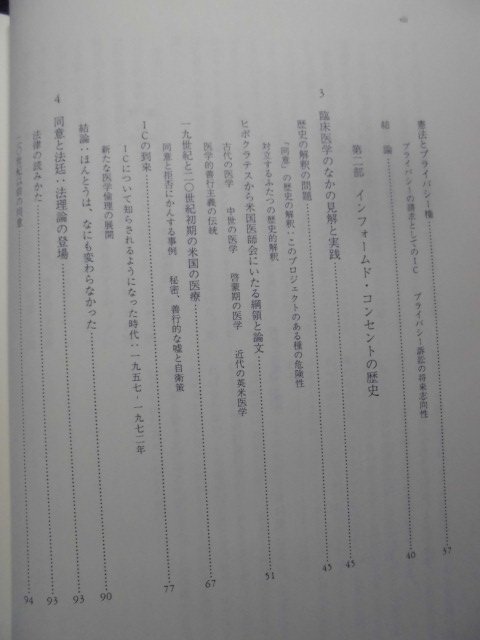 憲法とプライバシー権……37
プライバシーの請求としてのIC　プライバシー訴訟の将来志向性
結　論……40
第二部　インフォームド・コンセントの歴史
3　臨床医学のなかの見解と実践……45
歴史の解釈の問題……45
「同意」の歴史の解釈：このプロジェクトのある種の危険性
対立するふたつの歴史的解釈
ヒポクラテスから米国医師会にいたる綱領と論文……51
古代の医学　中世の医学　啓蒙期の医学　近代の英米医学
医学的善行主義の伝統
一九世紀と二〇世紀初期の米国の医療……67
同意と拒否にかんする事例　秘密、善行的な嘘と自衛策
ICの到来……77
ICについて知らされるようになった時代：一九五七‐一九七二年
新たな医学倫理の展開
結論：ほんとうは、なにも変わらなかった……90
4　同意と法廷：法理論の登場……93
法律の読みかた……93
94